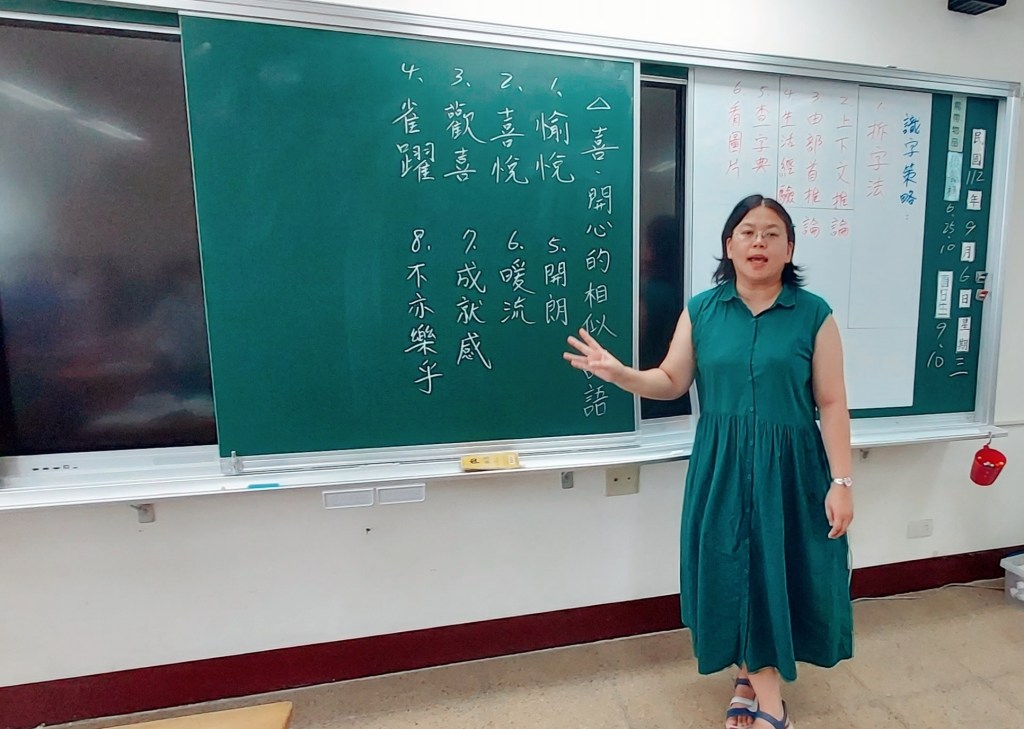 民國112年9月6日星期三
值日生
9、10
6.
25.
10
識字策略：
1.拆字法
2.上下文推論
3.由部首推論
4.生活經驗
5.查字典
6.看圖片
△喜、開心的相似語
1.愉悅
2.喜悅
3.歡喜
4.雀躍
5.開朗
6.暖流
7.成就感
8.不亦樂乎